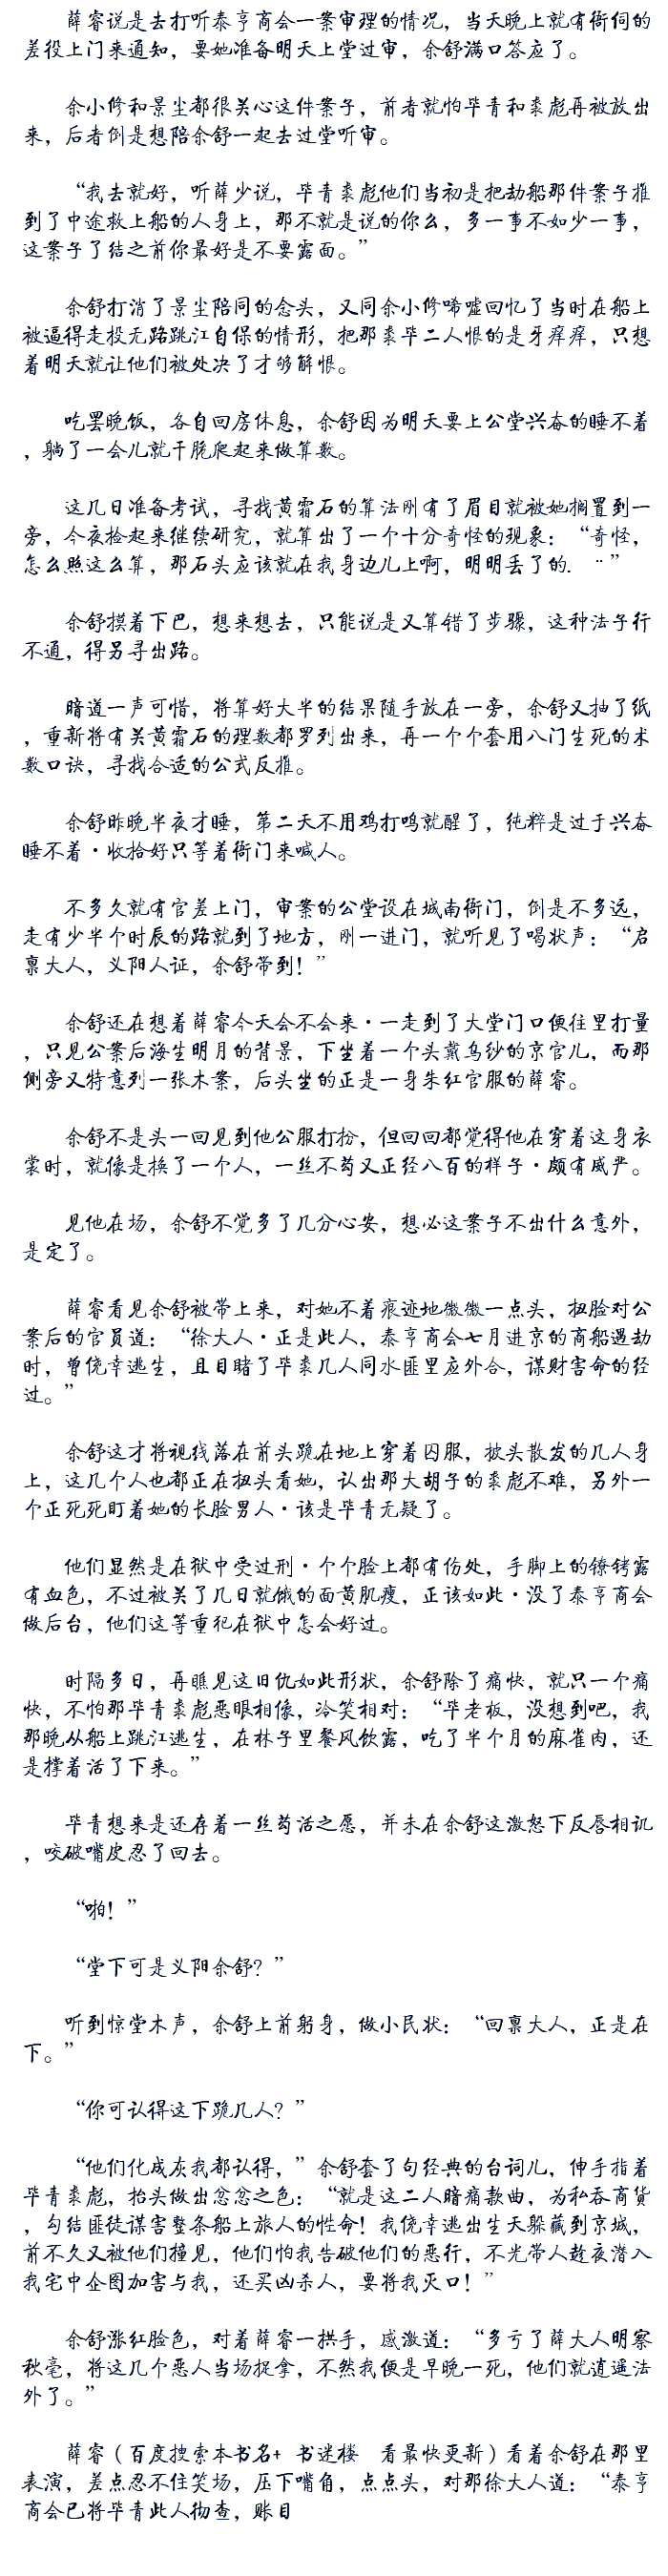 薛睿说是去打听泰亨商会一案审理的情况，当天晚上就有衙伺的
差役上门来通知，要她准备明天上堂过审，余舒满口答应了。
余小修和景尘都很关心这件案子，前者就怕毕青和裘彪再被放出
来，后者倒是想陪余舒一起去过堂听审。
“我去就好，听薛少说，毕青裘彪他们当初是把劫船那件案子推
到了中途救上船的人身上，那不就是说的你么，多一事不如少一事，
这案子了结之前你最好是不要露面。”
余舒打消了景尘陪同的念头，又同余小修唏嘘回忆了当时在船上
被逼得走投无路跳江自保的情形，把那裘毕二人恨的是牙痒痒，只想
着明天就让他们被处决了才够解恨。
吃罢晚饭，各自回房休息，余舒因为明天要上公堂兴奋的睡不着
，躺了一会儿就干脆爬起来做算数。
这几日准备考试，寻找黄霜石的算法刚有了眉目就被她搁置到一
旁，今夜捡起来继续研究，就算出了一个十分奇怪的现象：“奇怪，
怎么照这么算，那石头应该就在我身边儿上啊，明明丢了的．¨”
余舒摸着下巴，想来想去，只能说是又算错了步骤，这种法子行
不通，得另寻出路。
暗道一声可惜，将算好大半的结果随手放在一旁，余舒又抽了纸
，重新将有关黄霜石的理数都罗列出来，再一个个套用八门生死的术
数口诀，寻找合适的公式反推。
余舒昨晚半夜才睡，第二天不用鸡打鸣就醒了，纯粹是过于兴奋
睡不着·收拾好只等着衙门来喊人。
不多久就有官差上门，审案的公堂设在城南衙门，倒是不多远，
走有少半个时辰的路就到了地方，刚一进门，就听见了喝状声：“启
禀大人，义阳人证，余舒带到！”
余舒还在想着薛睿今天会不会来·一走到了大堂门口便往里打量
，只见公案后海生明月的背景，下坐着一个头戴乌纱的京官儿，而那
侧旁又特意列一张木案，后头坐的正是一身朱红官服的薛睿。
余舒不是头一回见到他公服打扮，但回回都觉得他在穿着这身衣
裳时，就像是换了一个人，一丝不苟又正经八百的样子·颇有威严。
见他在场，余舒不觉多了几分心安，想必这案子不出什么意外，
是定了。
薛睿看见余舒被带上来，对她不着痕迹地微微一点头，扭脸对公
案后的官员道：“徐大人·正是此人，泰亨商会七月进京的商船遇劫
时，曾侥幸逃生，且目睹了毕裘几人同水匪里应外合，谋财害命的经
过。”
余舒这才将视线落在前头跪在地上穿着囚服，披头散发的几人身
上，这几个人也都正在扭头看她，认出那大胡子的裘彪不难，另外一
个正死死盯着她的长脸男人·该是毕青无疑了。
他们显然是在狱中受过刑·个个脸上都有伤处，手脚上的镣铐露
有血色，不过被关了几日就饿的面黄肌瘦，正该如此·没了泰亨商会
做后台，他们这等重犯在狱中怎会好过。
时隔多日，再瞧见这旧仇如此形状，余舒除了痛快，就只一个痛
快，不怕那毕青裘彪恶眼相像，冷笑相对：“毕老板，没想到吧，我
那晚从船上跳江逃生，在林子里餐风饮露，吃了半个月的麻雀肉，还
是撑着活了下来。”
毕青想来是还存着一丝苟活之愿，并未在余舒这激怒下反唇相讥
，咬破嘴皮忍了回去。
“啪！”
“堂下可是义阳余舒？”
听到惊堂木声，余舒上前躬身，做小民状：“回禀大人，正是在
下。”
“你可认得这下跪几人？”
“他们化成灰我都认得，”余舒套了句经典的台词儿，伸手指着
毕青裘彪，抬头做出忿忿之色：“就是这二人暗痛款曲，为私吞商货
，勾结匪徒谋害整条船上旅人的性命！我侥幸逃出生天躲藏到京城，
前不久又被他们撞见，他们怕我告破他们的恶行，不光带人趁夜潜入
我宅中企图加害与我，还买凶杀人，要将我灭口！”
余舒涨红脸色，对着薛睿一拱手，感激道：“多亏了薛大人明察
秋毫，将这几个恶人当场捉拿，不然我便是早晚一死，他们就逍遥法
外了。”
薛睿（百度搜索本书名+ 书迷楼 看最快更新）看着余舒在那里
表演，差点忍不住笑场，压下嘴角，点点头，对那徐大人道：“泰亨
商会已将毕青此人彻查，账目